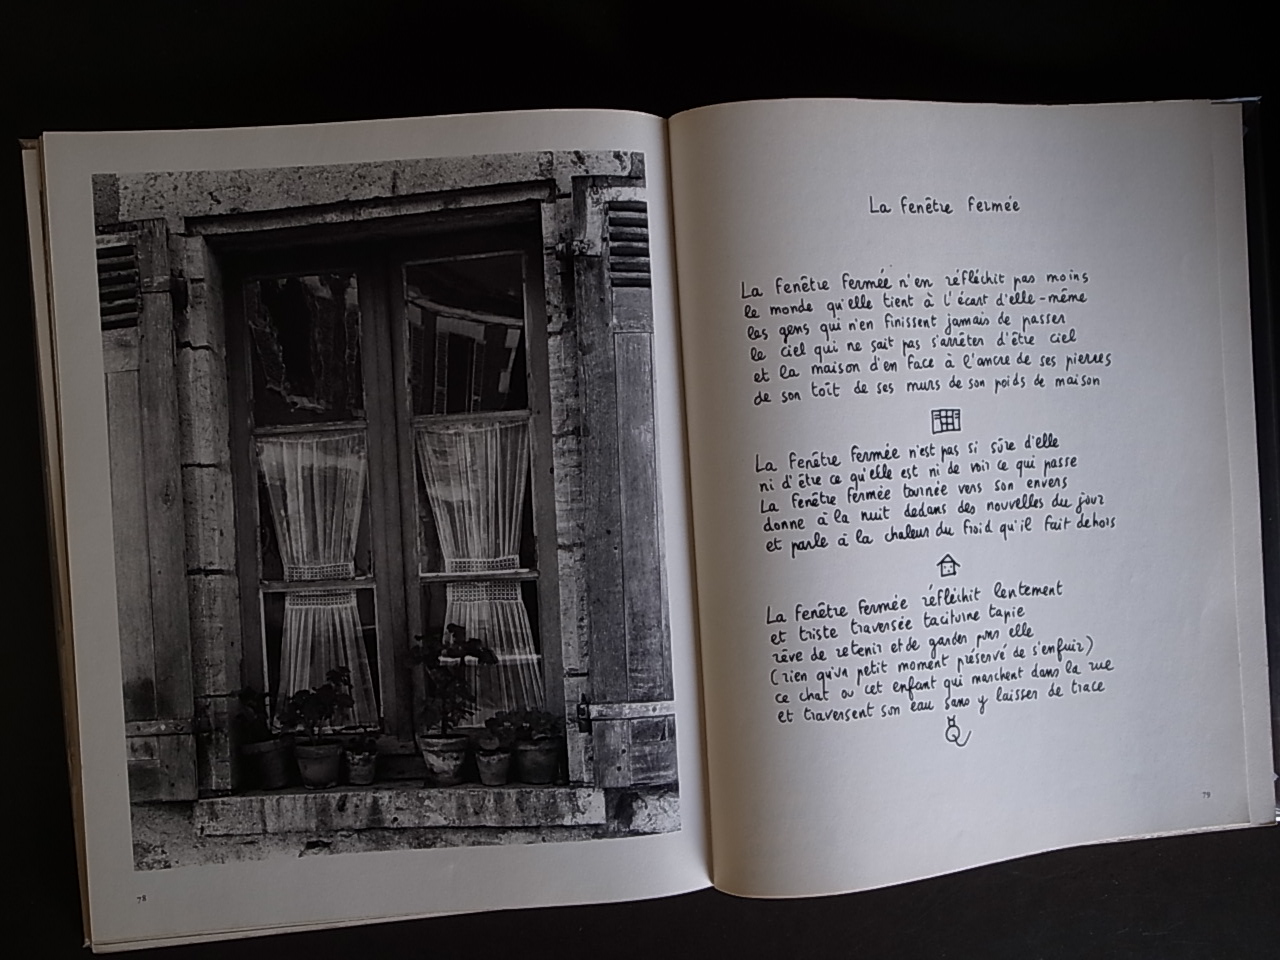 La fenêtre fermée
La fenêtre fermée n'en réfléchit pas moins
le monde qu'elle tient à l'écart d'elle-même
les gens qui n'en finissent jamais de passer
le ciel qui ne sait pas s'arrêter d'être ciel
et la maison d'en face à l'ancre de ses pierres
de son toît de ses murs de son poids de maison
La fenêtre fermée n'est pas si sûre d'elle
ni d'être ce qu'elle est ni de voir ce qui passe
La fenêtre fermée tournée vers son envers
donne à la nuit dedans des nouvelles du jour
et parle à la chaleur du froid qu'il fait dehors
La fenêtre fermée réfléchit lentement
et triste traversée taciturne tapie
rêve de retenir et de garder pour elle
(rien qu'un petit moment préservé de s'enfuir)
ce chat ou cet enfant qui marchent dans la rue
et traversent son eau sans y laisser de trace
78
79